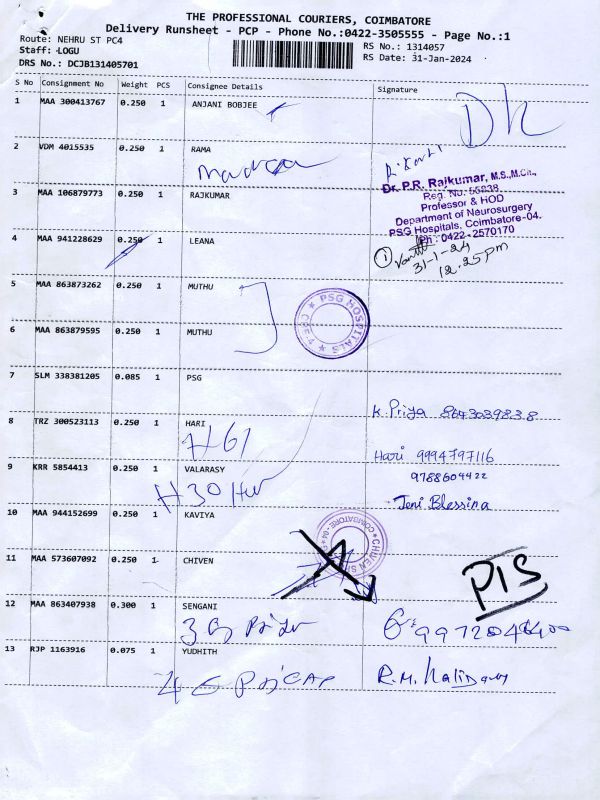 THE PROFESSIONAL COURIERS, COIMBATORE
Delivery Runsheet - PCP - Phone No.:0422-3505555 - Page No.:1
Route: NEHRU ST PC4
Staff: LOGU
DRS No.: DCJB131405701
RS No.: 1314057
RS Date: 31-Jan-2024
S No Consignment No Weight PCS Consignee Details Signature
1 MAA 300413767 0.250 1 ANJANI BOBJEE
2 VDM 4015535 0.250 1 RAMA
3 MAA 106879773 0.250 1 RAJKUMAR
Dr. P.R. Rajkumar, M.S.,M.Ch.,
Reg. No. 55838
Professor & HOD
Department of Neurosurgery
PSG Hospitals, Coimbatore-04.
Ph : 0422-2570170
4 MAA 941228629 0.250 1 LEANA
1
31-1-24
12.25pm
5 MAA 863873262 0.250 1 MUTHU
PSG HOSPITALS
6 MAA 863879595 0.250 1 MUTHU
7 SLM 338381205 0.085 1 PSG
K. Priya 8643039838
8 TRZ 300523113 0.250 1 HARI
H61
Hari 9994797116
9788604422
9 KRR 5854413 0.250 1 VALARASY
H30
Jeni Blessina
10 MAA 944152699 0.250 1 KAVIYA
11 MAA 573607092 0.250 1 CHIVEN
CHIVEN
COIMBATORE-04
12 MAA 863407938 0.300 1 SENGANI
13 RJP 1163916 0.075 1 YUDHITH